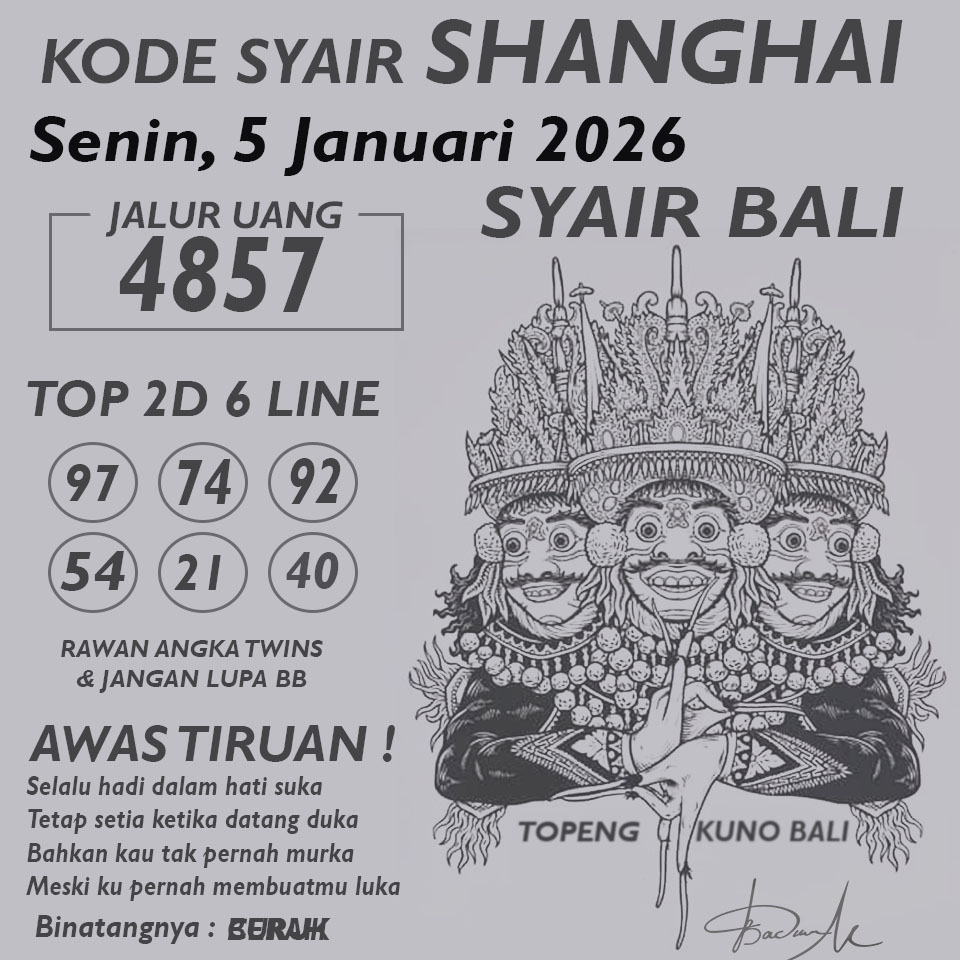 KODE SYAIR SHANGHAI
Senin, 5 Januari 2026
SYAIR BALI
JALUR UANG
4857
TOP 2D 6 LINE
97 74 92
54 21 40
RAWAN ANGKA TWINS
& JANGAN LUPA BB
AWAS TIRUAN !
Selalu hadi dalam hati suka
Tetap setia ketika datang duka
Bahkan kau tak pernah murka
Meski ku pernah membuatmu luka
Binatangnya :
TOPENG KUNO BALI